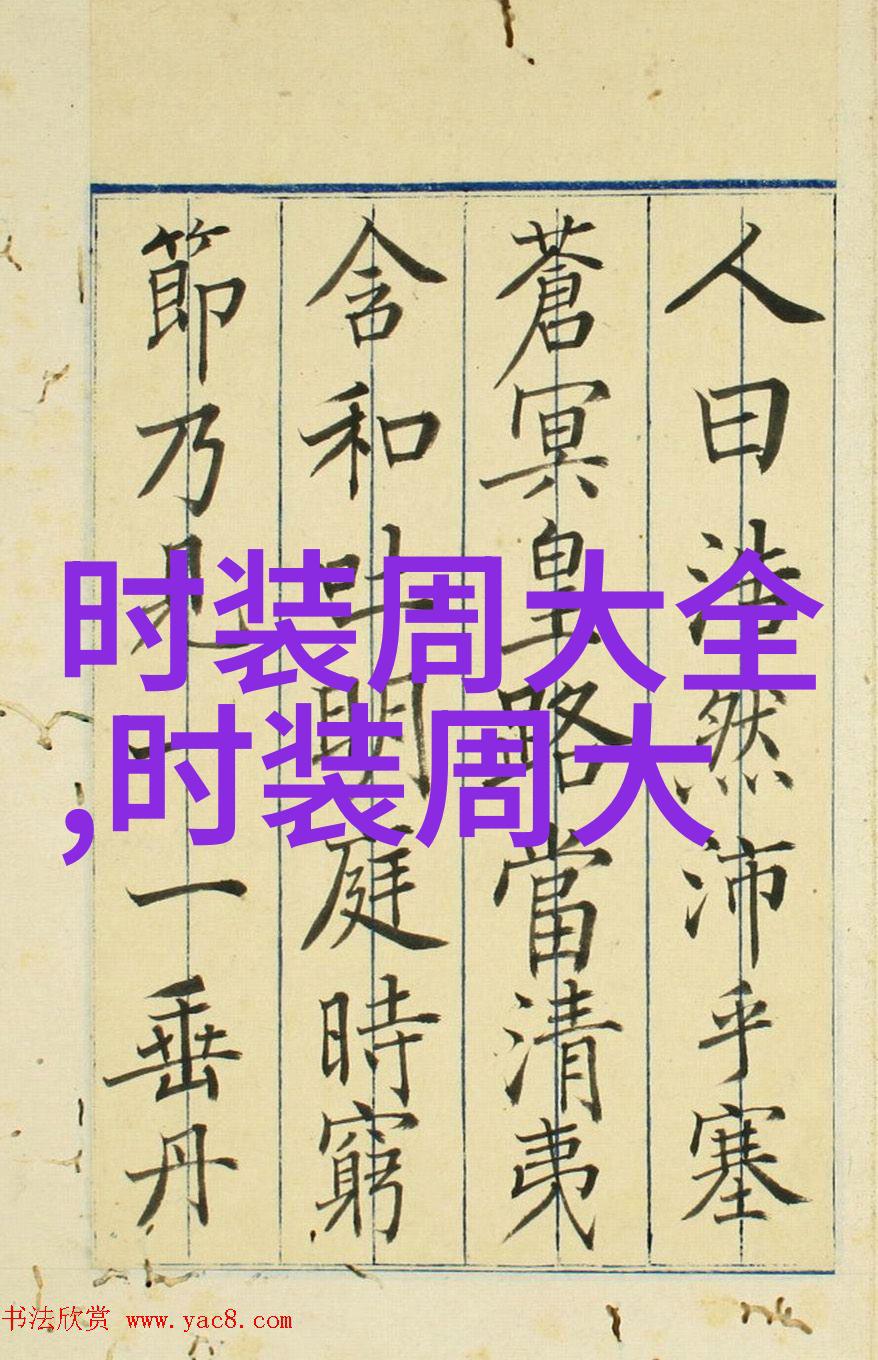 人曰浩然沛乎塞
蒼冥皇路當清夷
含和吐明庭時窮
節乃見一一垂丹
时装周大全
,时装周大
书法欣赏 www.yac8.com